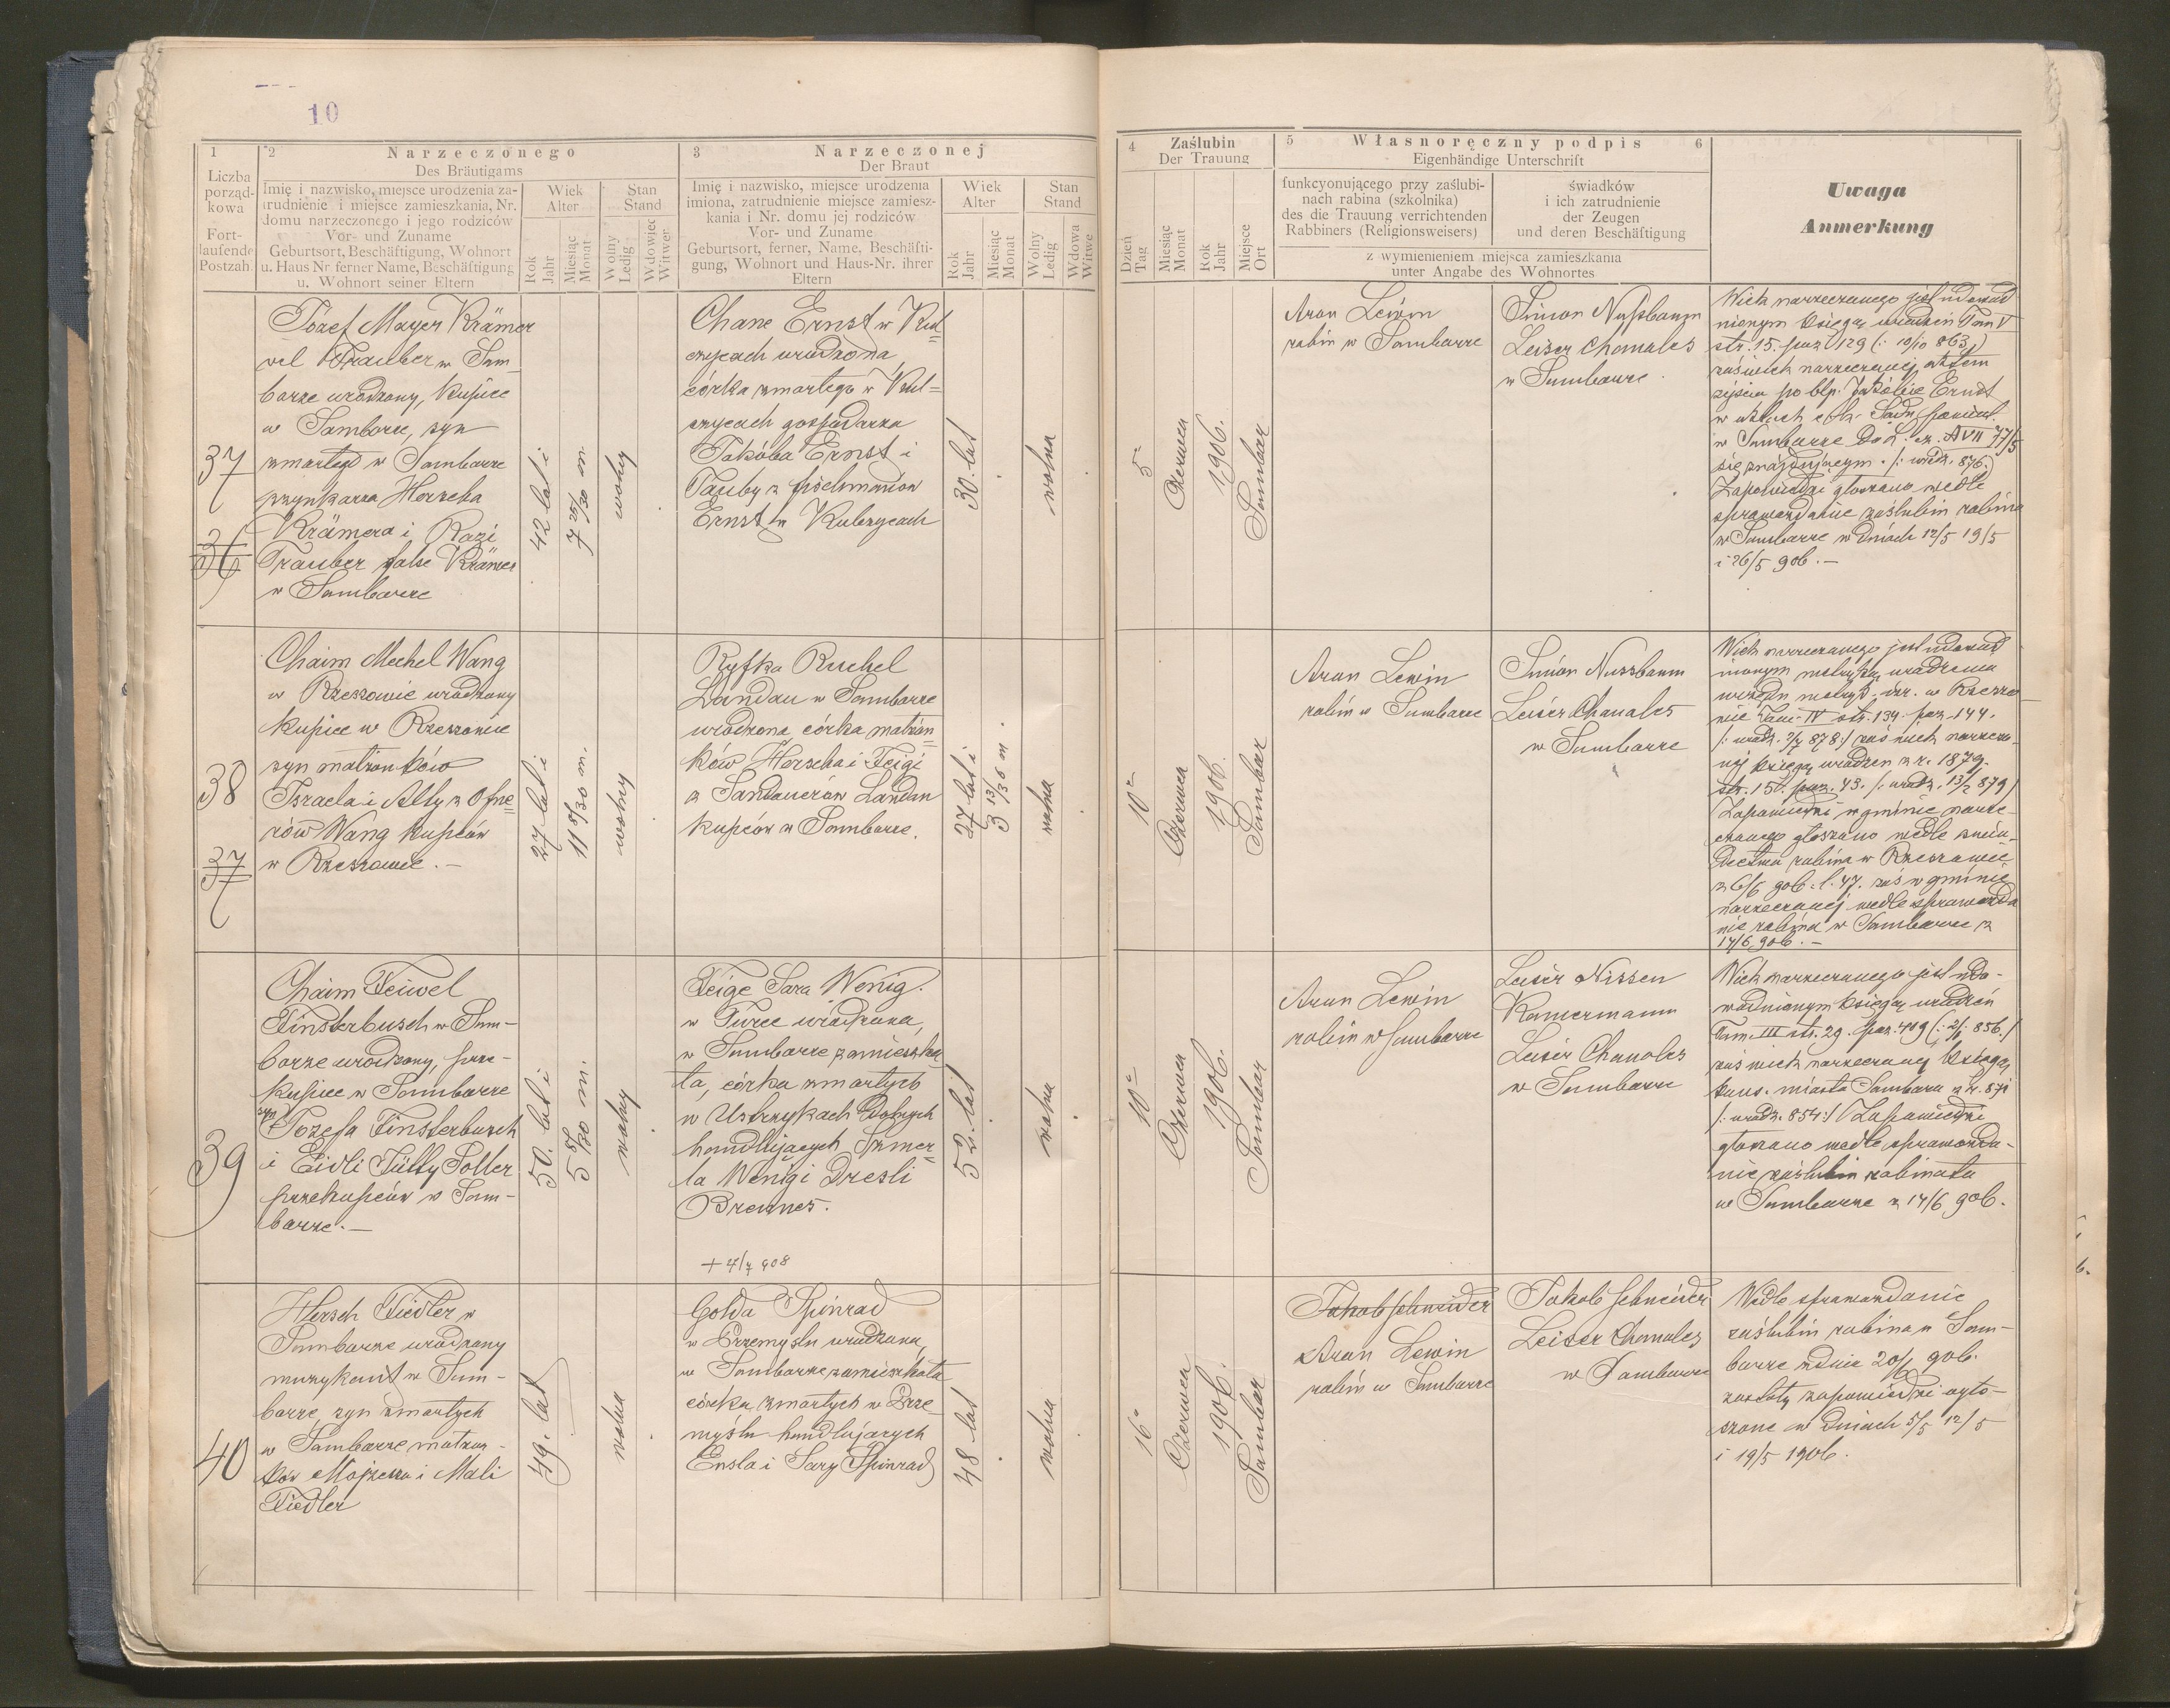 10
1
Liczba
porząd-
kowa
Fort-
laufende
Postzah.
2 Narzeczonego
Des Bräutigams
Imię i nazwisko, miejsce urodzenia za-
trudnienie i miejsce zamieszkania, Nr.
domu narzeczonego i jego rodziców
Vor- und Zuname
Geburtsort, Beschäftigung, Wohnort
u. Haus Nr ferner Name, Beschäftigung
u. Wohnort seiner Eltern
Wiek
Alter
Rok
Jahr
Miesiąc
Monat
Stan
Stand
Wolny
Ledig
Wdowiec
Witwer
3 Narzeczonej
Der Braut
Imię i nazwisko, miejsce urodzenia
imiona, zatrudnienie miejsce zamiesz-
kania i Nr. domu jej rodziców
Vor- und Zuname
Geburtsort, ferner, Name, Beschäfti-
gung, Wohnort und Haus-Nr. ihrer
Eltern
Wiek
Alter
Rok
Jahr
Miesiąc
Monat
Stan
Stand
Wolny
Ledig
Wdowa
Witwe
4 Zaślubin
Der Trauung
Dzień
Tag
Miesiąc
Monat
Rok
Jahr
Miejsce
Ort
5 Własnoręczny podpis 6
Eigenhändige Unterschrift
funkcyonującego przy zaślubi-
nach rabina (szkolnika)
des die Trauung verrichtenden
Rabbiners (Religionsweisers)
świadków
i ich zatrudnienie
der Zeugen
und deren Beschäftigung
z wymienieniem miejsca zamieszkania
unter Angabe des Wohnortes
Uwaga
Anmerkung
37
36
Józef Mayer Krämer
vel Trauber w Sam-
borze urodzony, kupiec
w Samborze, syn
zmarłego w Samborze
szynkarza Herscha
Krämera i Razi
Trauber false Krämer
w Samborze
42 lat i
7 25/30 m.
wolny
Chane Ernst w Kul
czycach urodzona
córka zmarłego w Kul=
czycach gospodarza
Jakóba Ernst i
Tauby z Fischmanów
Ernst w Kulczycach
30. lat
wolna
5
Czerwca
1906.
Sambor
Aron Lewin
rabin w Samborze
Simon Nußbaum
Leiser Chamales
w Samborze
Wiek narzeczonego jest udowod
nionym księgą urodzeń Tom V
str. 15. poz 129 (: 10/10 863)
zaś wiek narzeczonej aktem
zejścia po błp. Jakóbie Ernst
w aktach c. k. Sądu powiat.
w Samborze do L. cz. A VII 77/5
się znajdującym. /: urodz. 876.)
Zapowiedzi głoszono wedle
sprawozdanie zaślubin rabina
w Samborze w dniach 12/5 19/5
i 26/5 906. —
38
37
Chaim Mechel Wang
w Rzeszowie urodzony
kupiec w Rzeszowie
syn małżonków
Israela i Alty z Ofne=
rów Wang kupców
w Rzeszowie. —
27 lat i
11 5/30 m.
wolny
Ryfka Ruchel
Landau w Samborze
urodzona córka małżon=
ków Herscha i Feigi
z Landauerów Landau
kupców w Samborze.
27 lat i
3 13/30 m.
wolna
10
Czerwca
1906.
Sambor
Aron Lewin
rabin w Samborze
Simon Nussbaum
Leiser Chamales
w Samborze
Wiek narzeczonego jest udowod
nionym metryką urodzenia
urzędu metryk. izr. w Rzeszo
wie Tom IV str. 134. poz. 144.
/: urodz. 2/7 878:/ zaś wiek narzeczo-
nej księgą urodzeń z r. 1879.
str. 151. poz. 43. /: urodz. 13/2 879/
Zapowiedzi w gminie narze-
czonego głoszono wedle świa-
dectwa rabina w Rzeszowie
z 6/6 906. l. 47. zaś w gminie
narzeczonej wedle sprawozda
nie rabina w Samborze z
17/6 906. —
39
Chaim Feiwel
Finsterbusch w Sam-
borze urodzony, prze-
kupiec w Samborze
syn Józefa Finsterbusch
i Eidli Jütty Soller
przekupców w Sam-
borze. —
50. lat i
5 8/30 m.
wolny
Feige Sara Wenig.
w Turce urodzona,
w Samborze zamieszka
ła, córka zmarłych
w Ustrzykach Dolnych
handlujących Szmer=
la Wenig i Dresli
Brennes.
+ 4/7 908
52. lat
wolna
10
Czerwca
1906.
Sambor
Aron Lewin
rabin w Samborze
Leiser Nissen
Kamermann
Leiser Chamales
w Samborze
Wiek narzeczonego jest udo-
wodnionym księgą urodzeń
Tom. III str. 29. poz. 419 (: 2/1 856./
zaś wiek narzeczonej księgą
kons. miasta Sambora z r. 871
/: urodz. 854:/ Zapowiedzi
głoszono wedle sprawozda-
nie zaślubin rabinatu
w Samborze z 17/6 906.
40
Hersch Fiedler w
Samborze urodzony
muzykant w Sam-
borze, syn zmarłych
w Samborze małżon-
ków Mojżesza i Mali
Fiedler
49. lat
wolna
Golda Spinrad
w Przemyślu urodzona,
w Samborze zamieszkała
córka zmarłych w Prze
myślu handlujących
Ensla i Sary Spinrad
48 lat
wolna
16
Czerwca
1906.
Sambor
Jakob Schneider
Aron Lewin
rabin w Samborze
Jakob Schneider
Leiser Chamales
w Samborze
Wedle sprawozdanie
zaślubin rabina w Sam-
borze z dnia 20/6 906.
zostały zapowiedzi ogło-
szone w dniach 5/5 12/5
i 19/5 1906.